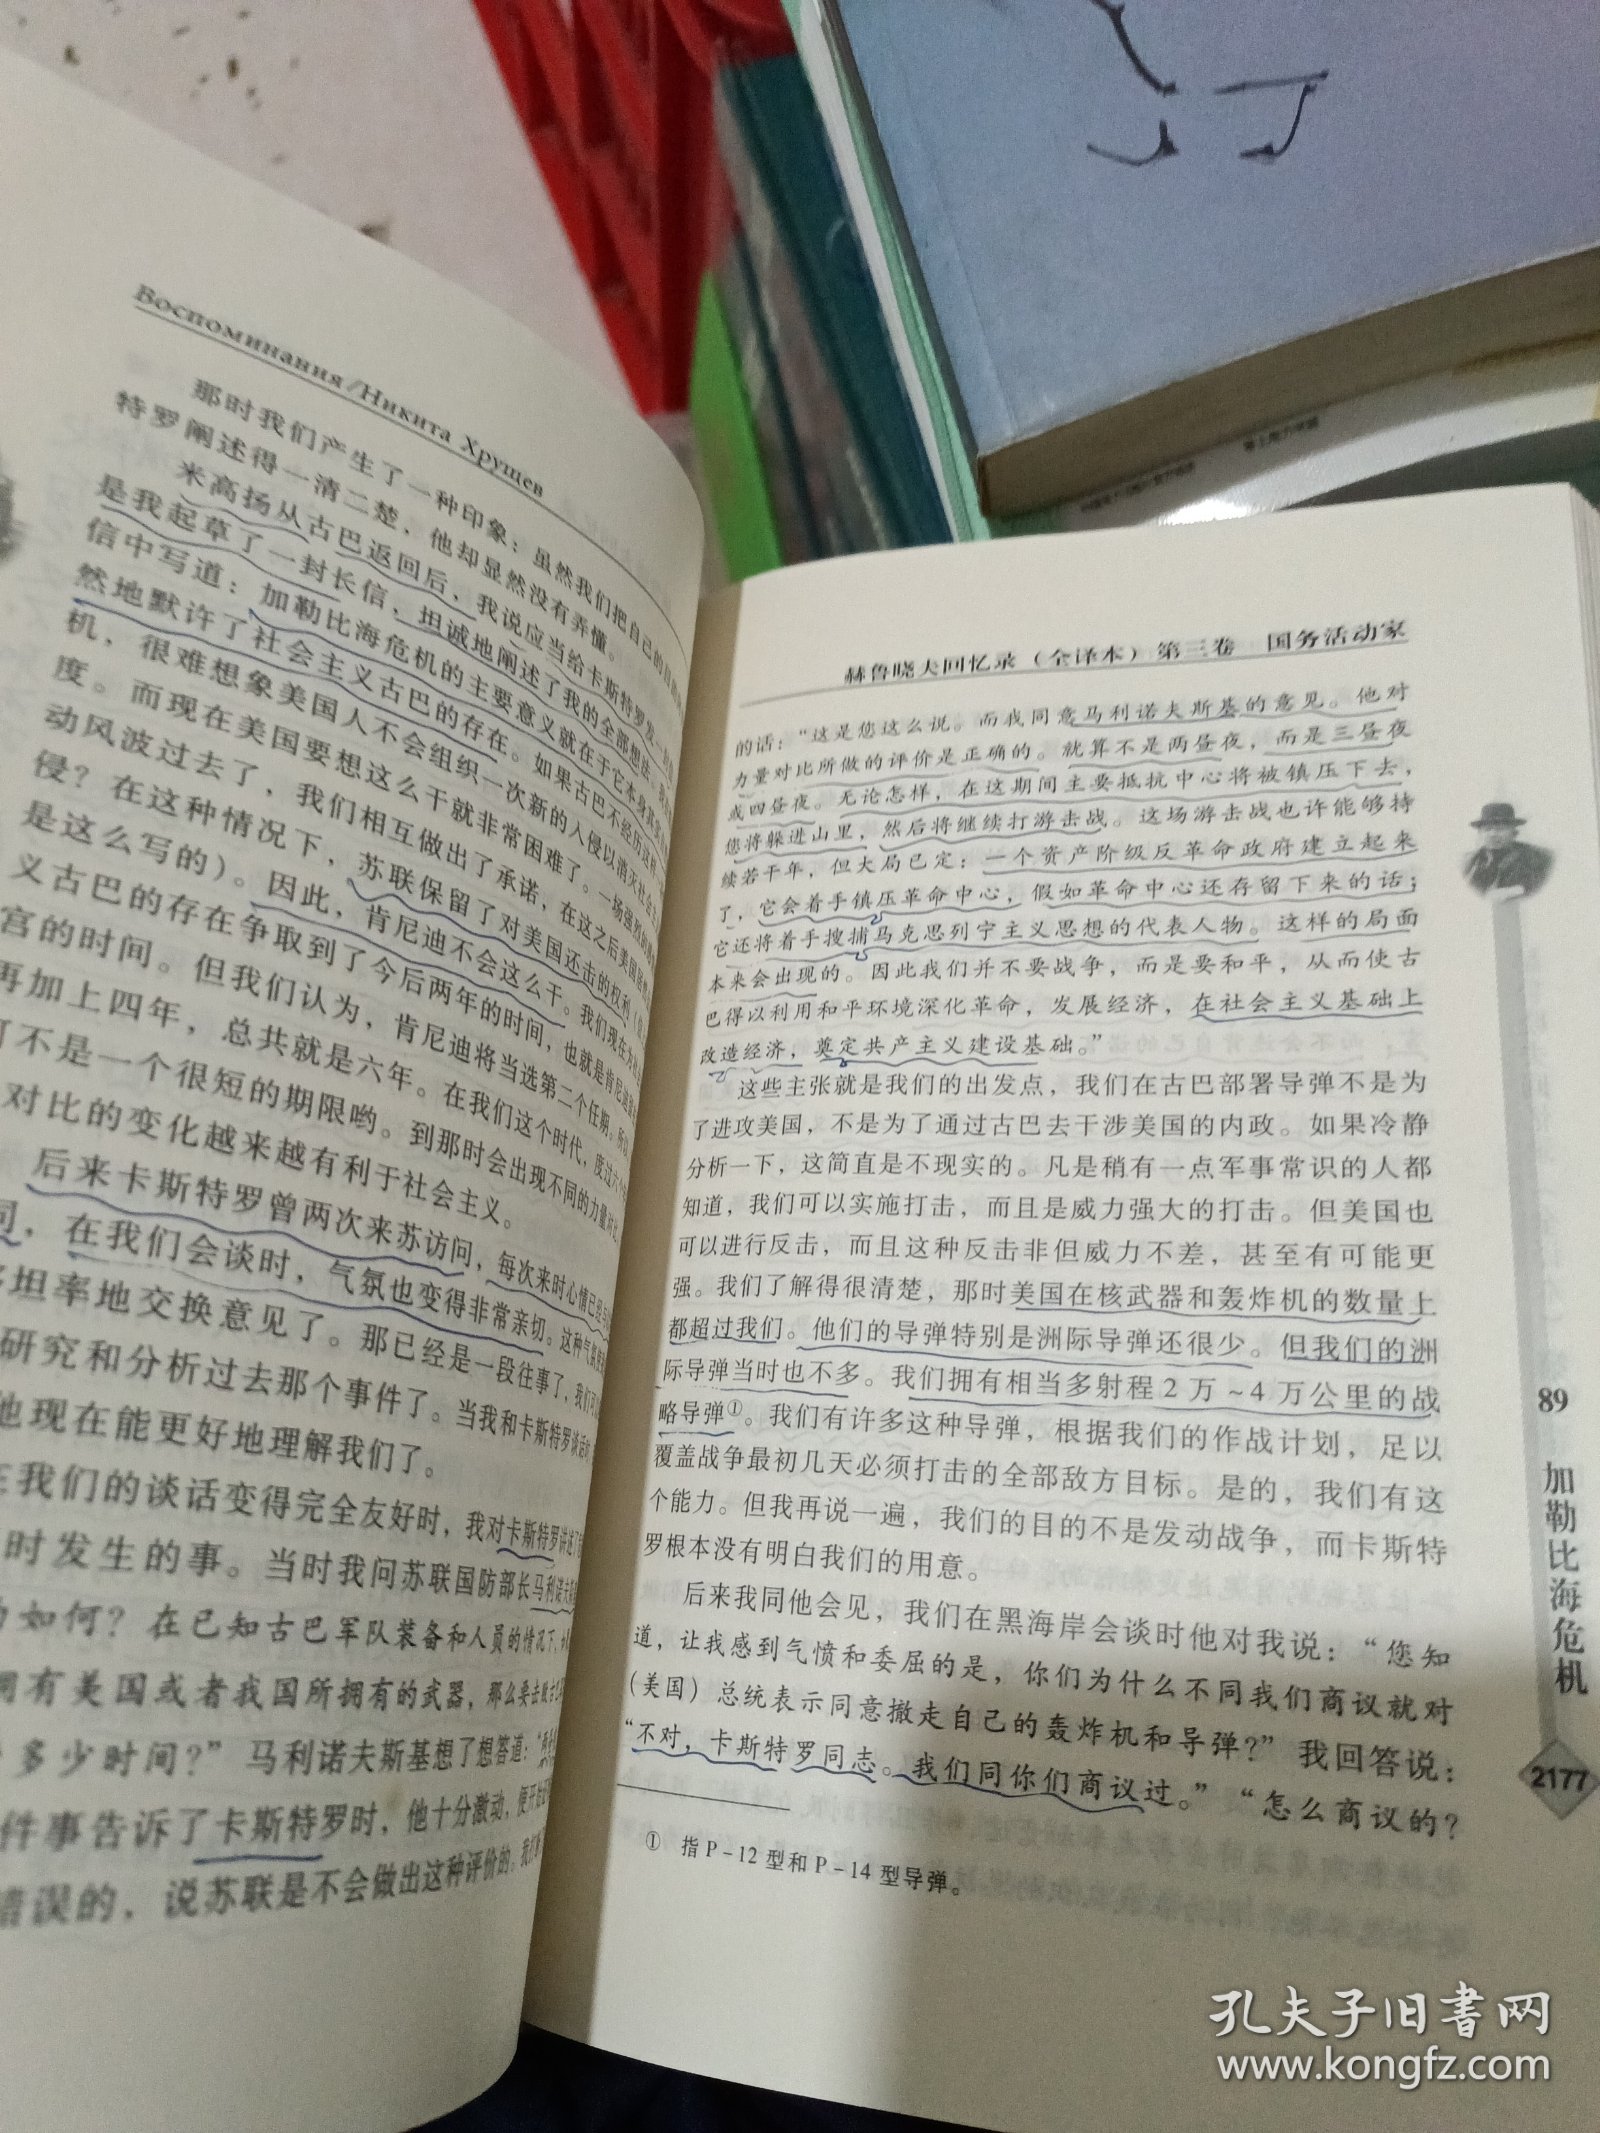 Воспоминания/Никита Хрущев
那时我们产生了一种印象：虽然我们把自己的
特罗阐述得一清二楚，他却显然没有弄懂。
米高扬从古巴返回后，我说应当给卡斯特罗发一封
是我起草了一封长信，坦诚地阐述了我的全部想法。
信中写道：加勒比海危机的主要意义就在于它本身
然地默许了社会主义古巴的存在。如果古巴不经历这样
机，很难想象美国人不会组织一次新的入侵以消灭社会主
度。而现在美国要想这么干就非常困难了。一场强烈的
动风波过去了，我们相互做出了承诺，在这之后美国
侵？在这种情况下，苏联保留了对美国还击的权利
是这么写的）。因此，肯尼迪不会这么干。我们现在为
义古巴的存在争取到了今后两年的时间，也就是肯尼迪
宫的时间。但我们认为，肯尼迪将当选第二个任期。所
再加上四年，总共就是六年。在我们这个时代，度过六个
可不是一个很短的期限哟。到那时会出现不同的力量对比
对比的变化越来越有利于社会主义。
后来卡斯特罗曾两次来苏访问，每次来时心情已经
同，在我们会谈时，气氛也变得非常亲切。这种气氛
坦率地交换意见了。那已经是一段往事了，我们可以
研究和分析过去那个事件了。当我和卡斯特罗谈话时
他现在能更好地理解我们了。
在我们的谈话变得完全友好时，我对卡斯特罗讲述了
时发生的事。当时我问苏联国防部长马利诺夫斯
如何？在已知古巴军队装备和人员的情况下，
拥有美国或者我国所拥有的武器，那么要击败古
多少时间？”马利诺夫斯基想了想答道：“两昼
件事告诉了卡斯特罗时，他十分激动，便开始
错误的，说苏联是不会做出这种评价的。我
赫鲁晓夫回忆录（全译本）第三卷 国务活动家
的话：“这是您这么说。而我同意马利诺夫斯基的意见。他对
力量对比所做的评价是正确的。就算不是两昼夜，而是三昼夜
或四昼夜。无论怎样，在这期间主要抵抗中心将被镇压下去，
您将躲进山里，然后将继续打游击战。这场游击战也许能够持
续若干年，但大局已定：一个资产阶级反革命政府建立起来
了，它会着手镇压革命中心，假如革命中心还存留下来的话；
它还将着手搜捕马克思列宁主义思想的代表人物。这样的局面
本来会出现的。因此我们并不要战争，而是要和平，从而使古
巴得以利用和平环境深化革命，发展经济，在社会主义基础上
改造经济，奠定共产主义建设基础。”
这些主张就是我们的出发点，我们在古巴部署导弹不是为
了进攻美国，不是为了通过古巴去干涉美国的内政。如果冷静
分析一下，这简直是不现实的。凡是稍有一点军事常识的人都
知道，我们可以实施打击，而且是威力强大的打击。但美国也
可以进行反击，而且这种反击非但威力不差，甚至有可能更
强。我们了解得很清楚，那时美国在核武器和轰炸机的数量上
都超过我们。他们的导弹特别是洲际导弹还很少。但我们的洲
际导弹当时也不多。我们拥有相当多射程2万~4万公里的战
略导弹①。我们有许多这种导弹，根据我们的作战计划，足以
覆盖战争最初几天必须打击的全部敌方目标。是的，我们有这
个能力。但我再说一遍，我们的目的不是发动战争，而卡斯特
罗根本没有明白我们的用意。
后来我同他会见，我们在黑海岸会谈时他对我说：“您知
道，让我感到气愤和委屈的是，你们为什么不同我们商议就对
（美国）总统表示同意撤走自己的轰炸机和导弹？”我回答说：
“不对，卡斯特罗同志。我们同你们商议过。”“怎么商议的？
① 指P-12型和P-14型导弹。
89
加勒比海危机
2177
孔夫子旧书网
www.kongfz.com